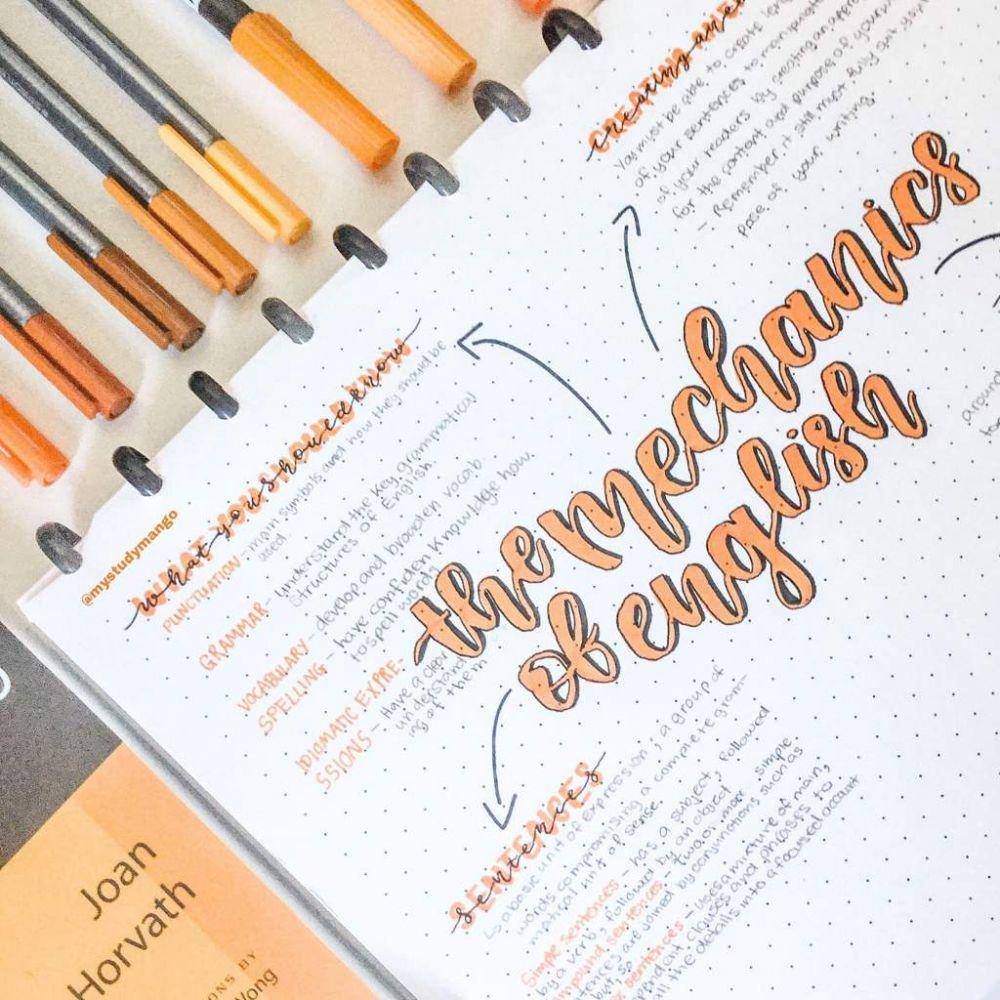 CREATING AND
creating and
You must be able to create
of your sentences to manipulate
of your readers by creating an
for the content and purpose of your
- Remember, it still must fully suit
pose of your writing.
the mechanics
of english
@mystudymango
WHAT YOU SHOULD KNOW
what you should know
PUNCTUATION - main symbols and how they should be
used.
GRAMMAR - understand the key grammatical
structures of English.
VOCABULARY - develop and broaden vocab.
SPELLING - have confiden knowldge how
to spell words
IDIOMATIC EXPRE-
SSIONS - Have a clear
understand
ing of them
SENTENCES
sentences
is a basic unit of expression; a group of
words compromising a complete gram-
matical unit of sense.
Simple sentences - has a subject, followed
by a verb, followed by an object
compound sentences - two or more simple
tences are joined by conjunctions such as
but, so
sentences - uses a mixture of main,
pendant clauses and phrases to
all the details into a focused account
around
Joan
Horvath
ONS BY
Wong